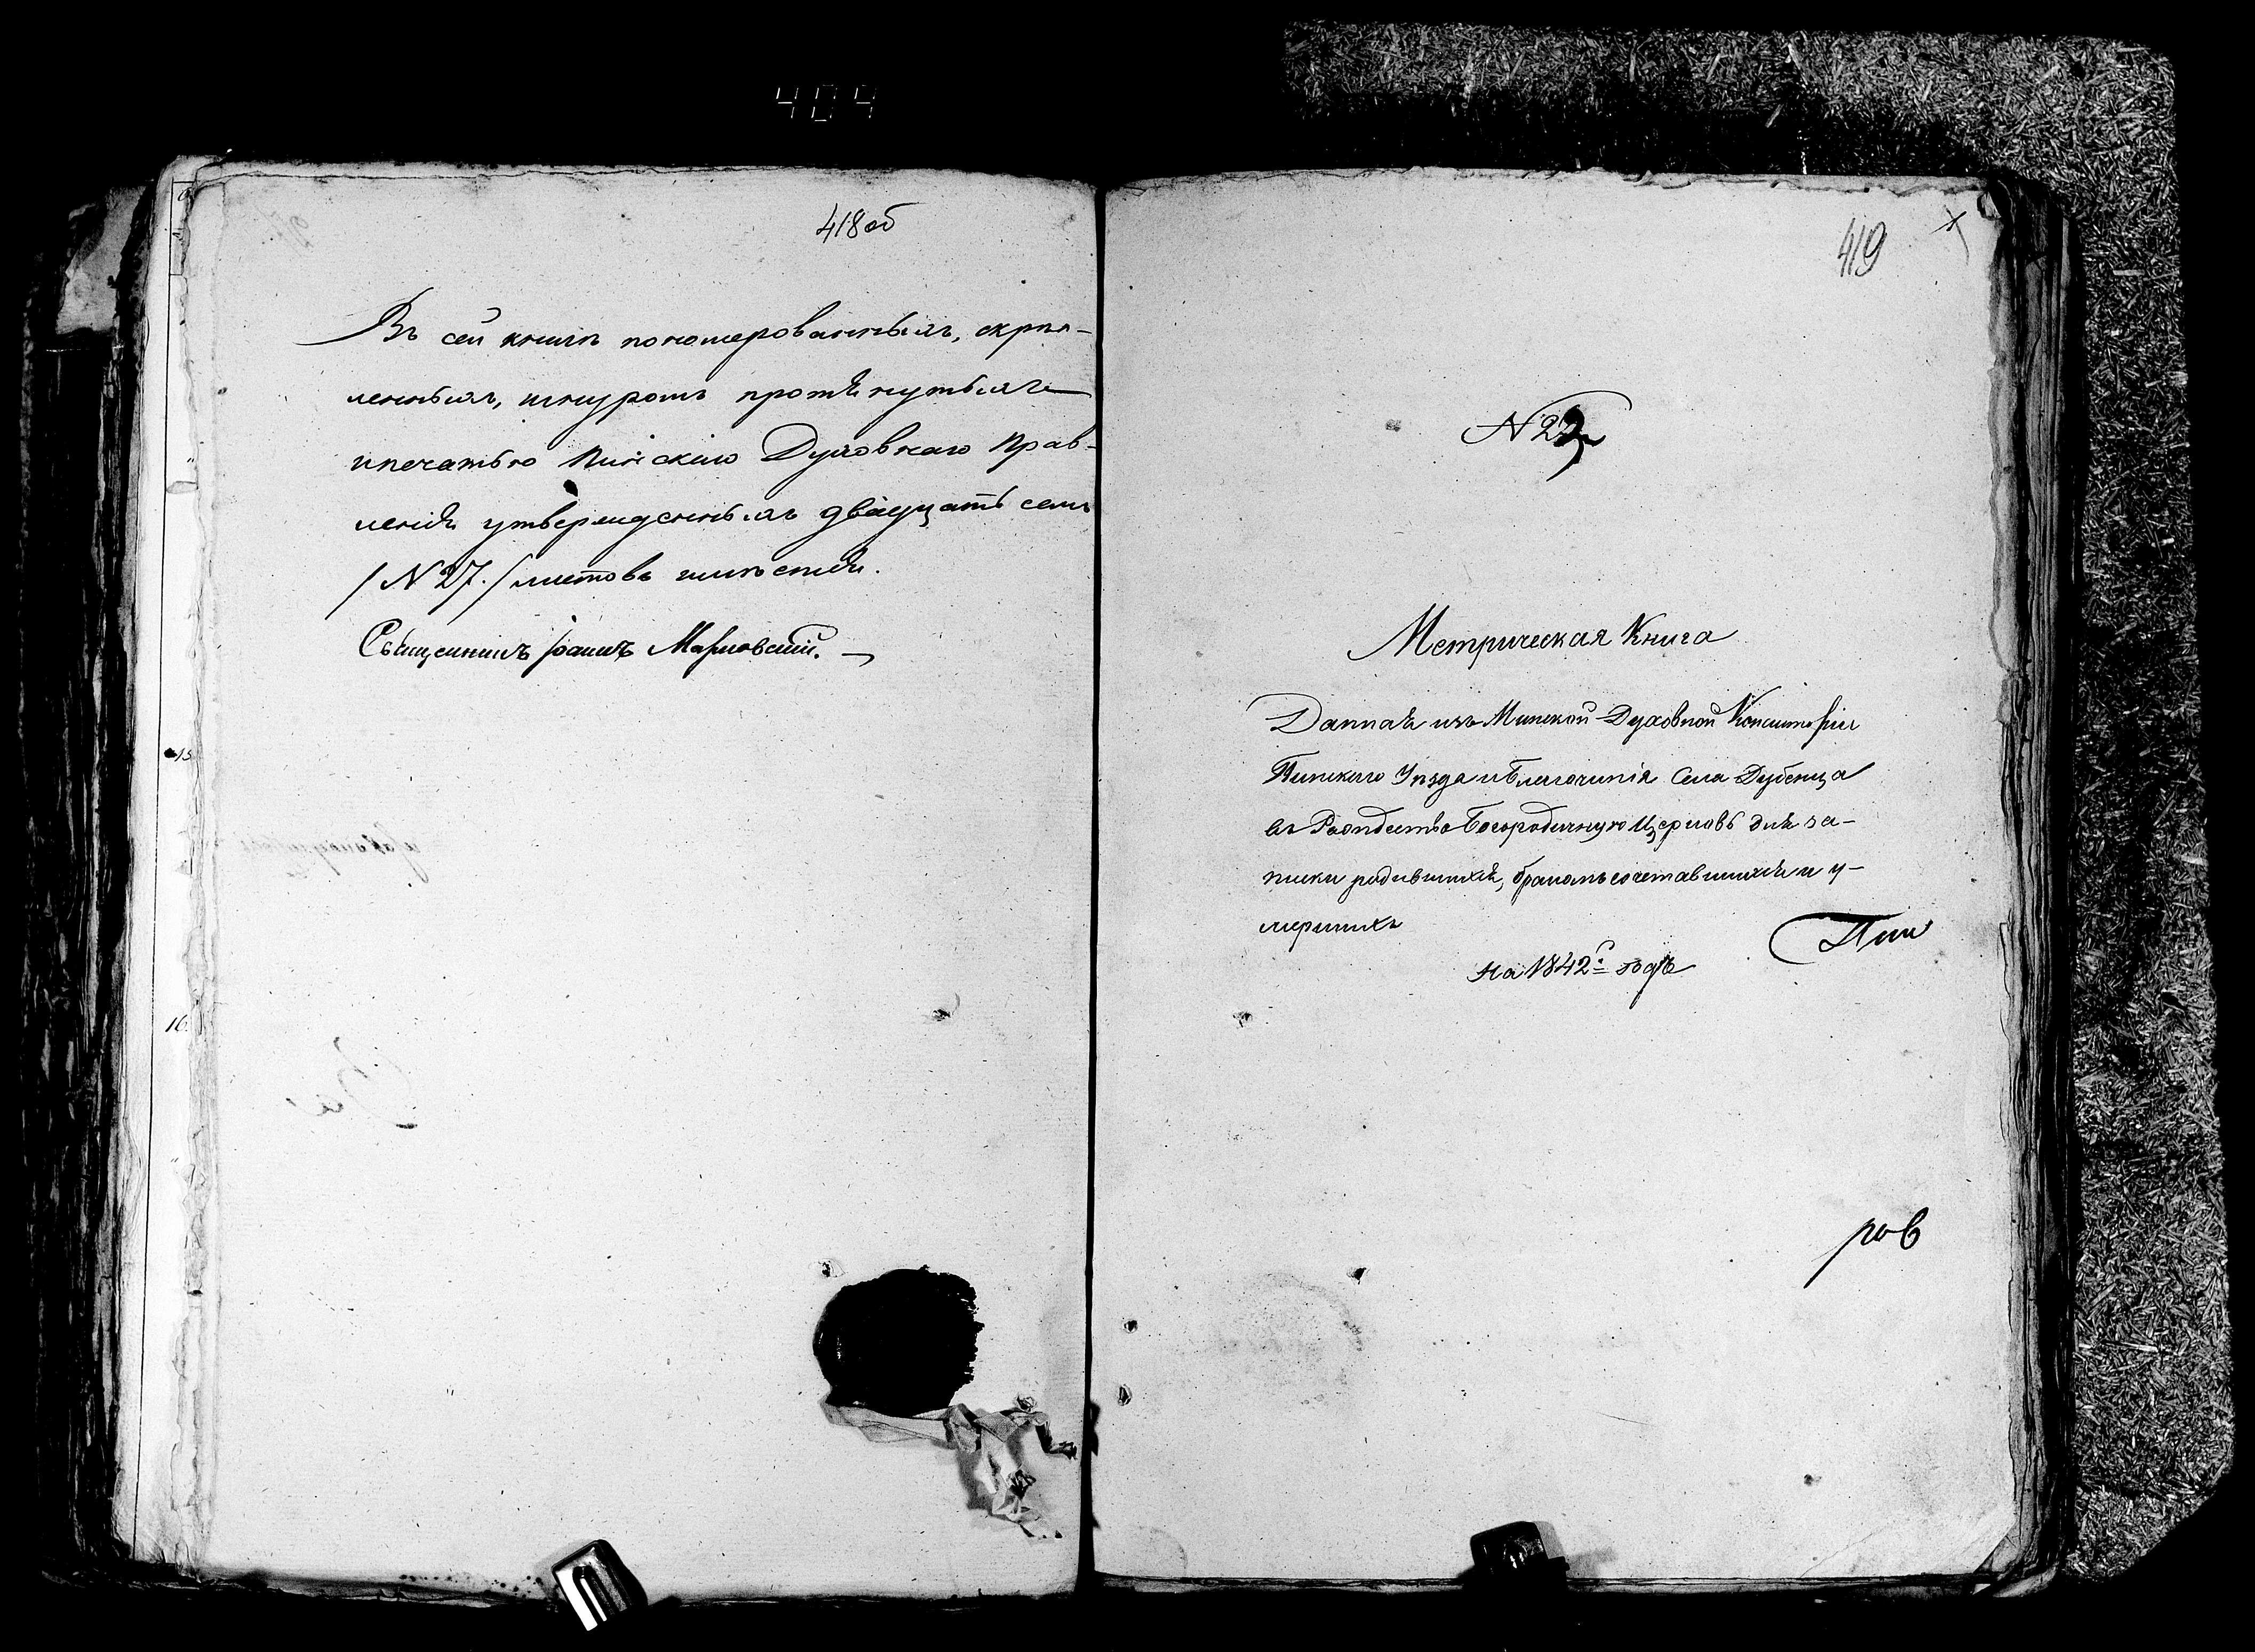 404
418об
Въ сей книгѣ пономерованныхъ, скрѣп-
ленныхъ, шнуромъ протянутыхъ
и печатью Пинскаго Духовнаго Прав-
ленія утвержденныхъ двадцать семь
/N 27./ листовъ имѣется.
Священникъ Іоаннъ
15
16
419
N 2
Метрическая Книга
Данная изъ Минской Духовной Консисторіи
Пинскаго Уѣзда и Благочинія Села Дубенца
въ Рождество Богородичную Церковь для за-
писки родившихся, бракомъ сочетавшихся и у-
мершихъ
на 1842й годъ
Пин
ров